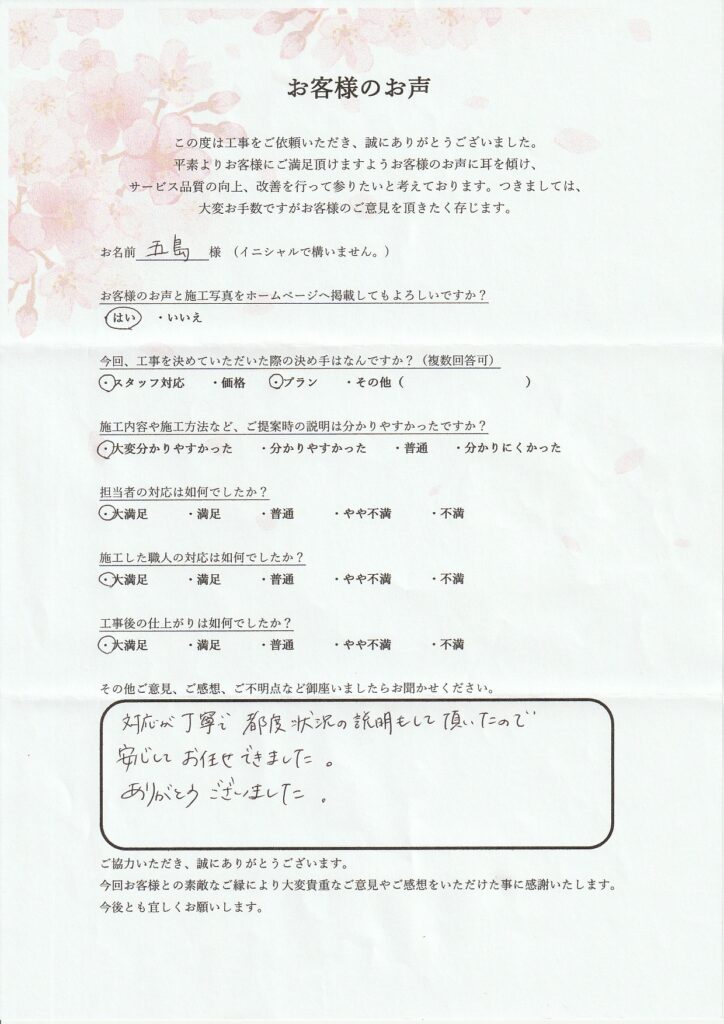 お客様のお声
この度は工事をご依頼いただき、誠にありがとうございました。
平素よりお客様にご満足頂けますようお客様のお声に耳を傾け、
サービス品質の向上、改善を行って参りたいと考えております。つきましては、
大変お手数ですがお客様のご意見を頂きたく存じます。
お名前 五島 様 （イニシャルで構いません。）
お客様のお声と施工写真をホームページへ掲載してもよろしいですか？
・はい ・いいえ
今回、工事を決めていただいた際の決め手はなんですか？（複数回答可）
・スタッフ対応 ・価格 ・プラン ・その他（ ）
施工内容や施工方法など、ご提案時の説明は分かりやすかったですか？
・大変分かりやすかった ・分かりやすかった ・普通 ・分かりにくかった
担当者の対応は如何でしたか？
・大満足 ・満足 ・普通 ・やや不満 ・不満
施工した職人の対応は如何でしたか？
・大満足 ・満足 ・普通 ・やや不満 ・不満
工事後の仕上がりは如何でしたか？
・大満足 ・満足 ・普通 ・やや不満 ・不満
その他ご意見、ご感想、ご不明点など御座いましたらお聞かせください。
対応が丁寧で 都度状況の説明もして頂いたので
安心して お任せできました。
ありがとうございました。
ご協力いただき、誠にありがとうございます。
今回お客様との素敵なご縁により大変貴重なご意見やご感想をいただけた事に感謝いたします。
今後とも宜しくお願いします。